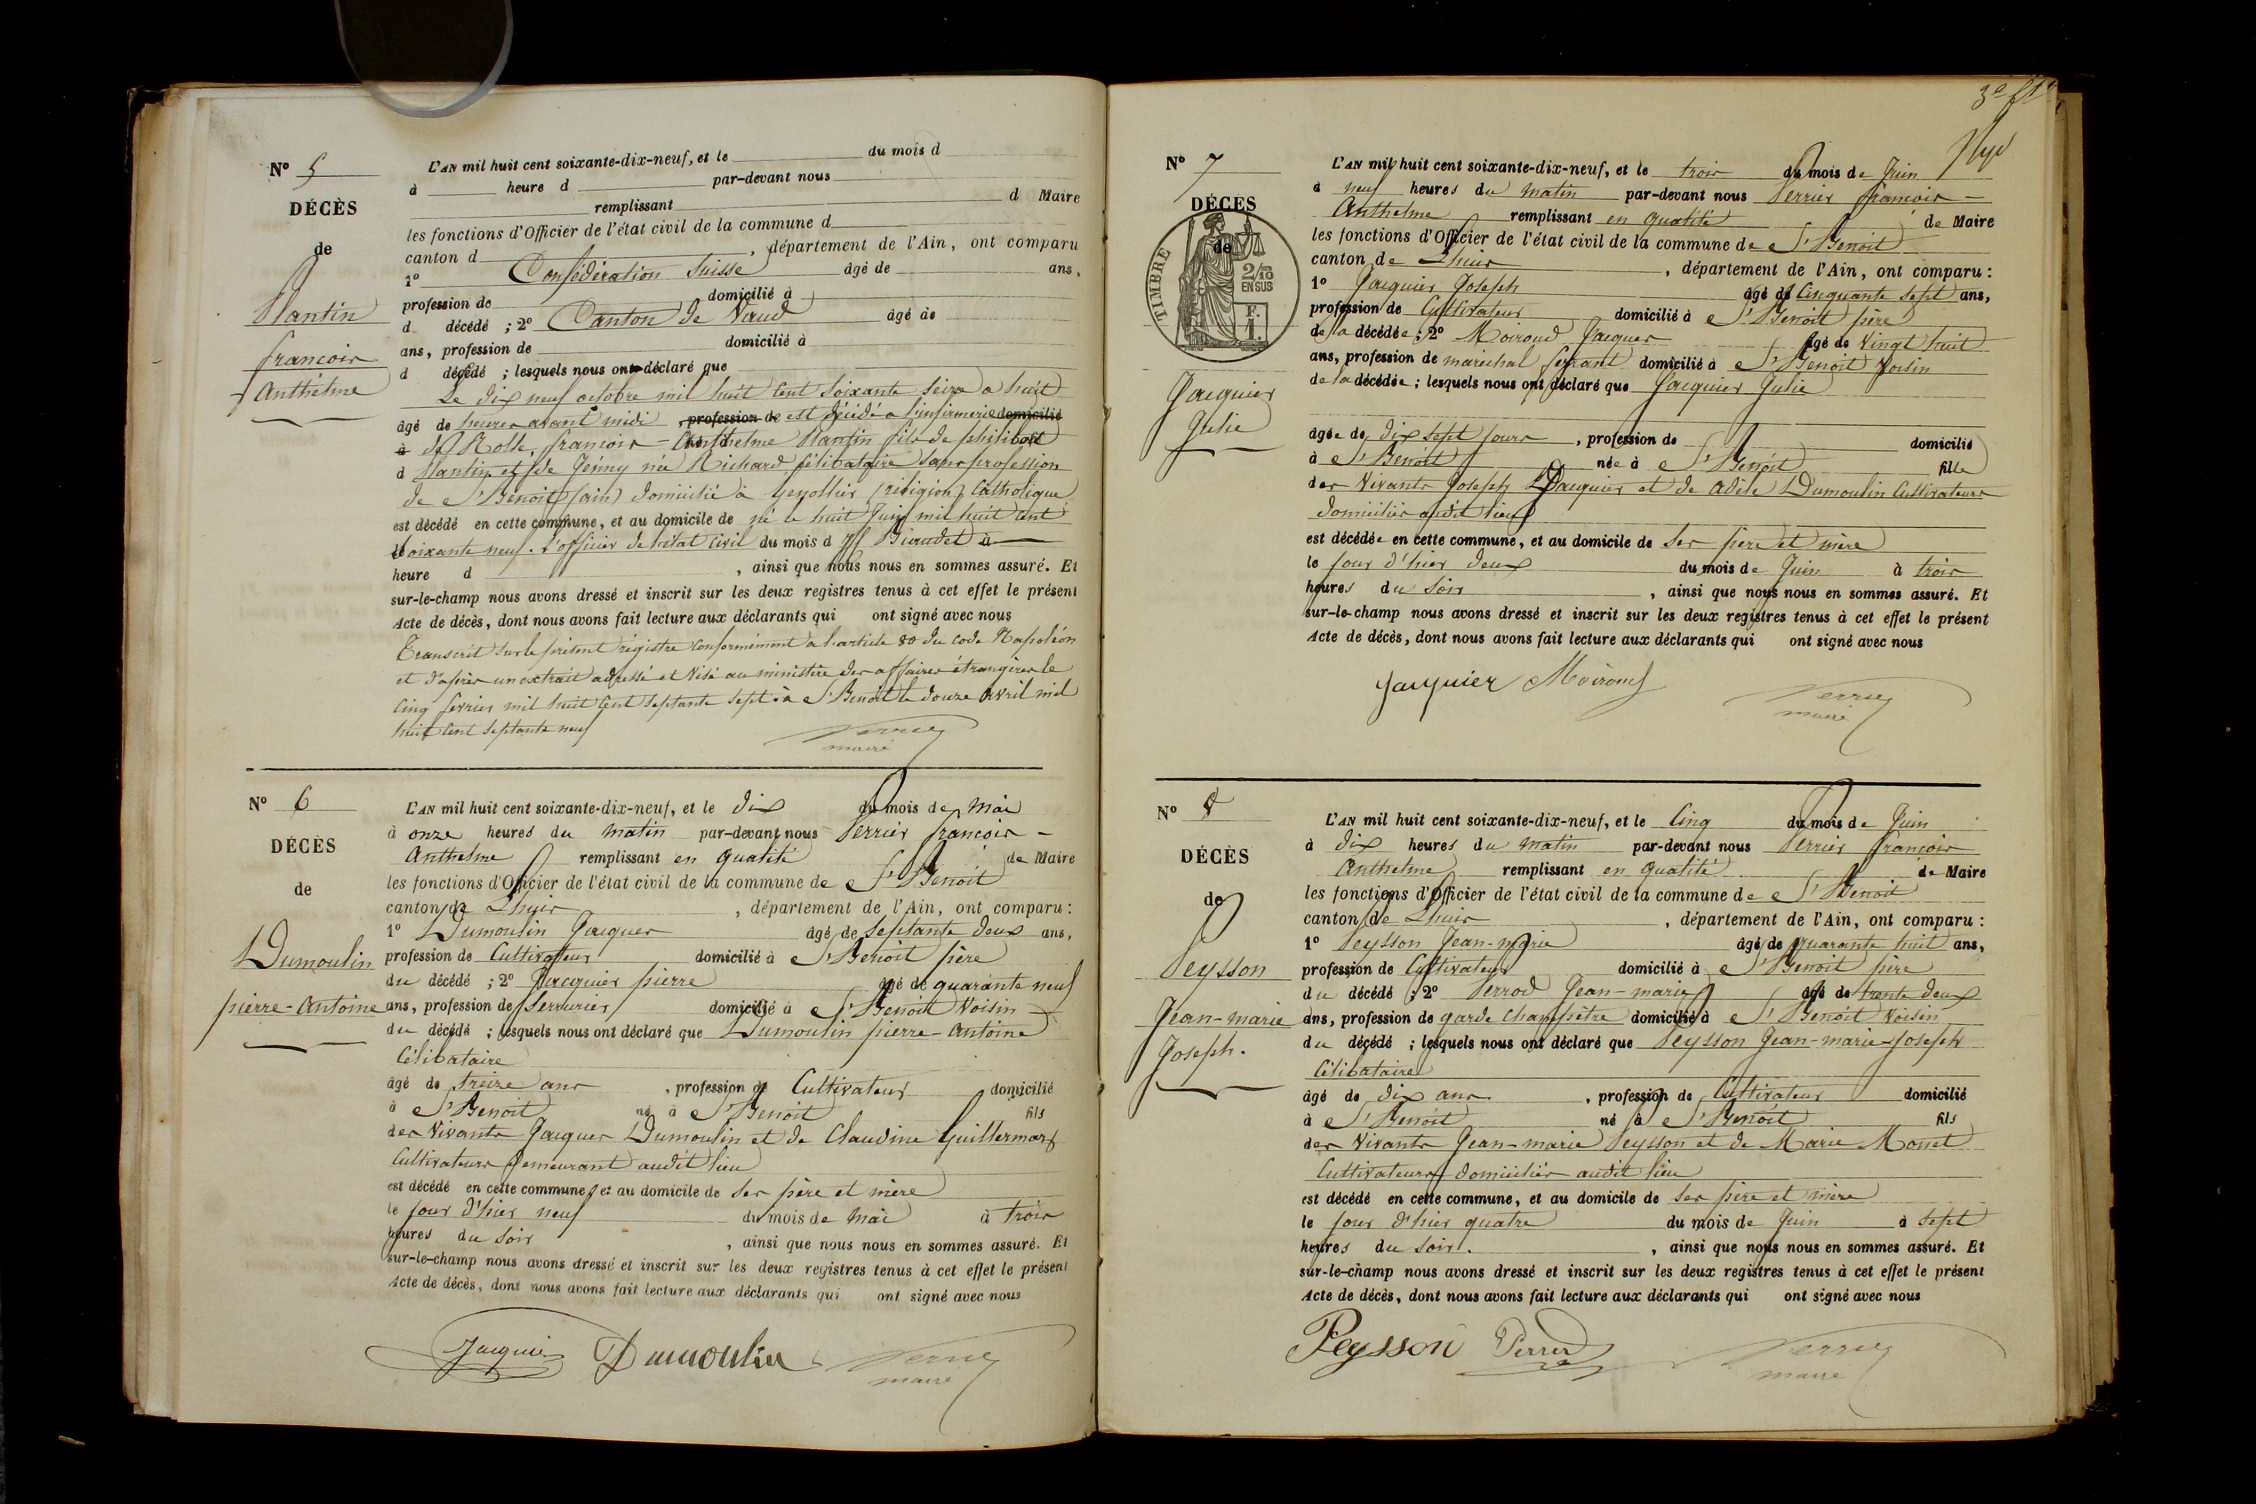 N° 5
DÉCÈS
de
Plantin
francois
Anthelme
L'AN mil huit cent soixante-dix-neuf, et le du mois d
à heure d par-devant nous
remplissant d Maire
les fonctions d'Officier de l'état civil de la commune d
canton d , département de l'Ain, ont comparu
1° Confédération Suisse âgé de ans,
profession de domicilié à
d décédé ; 2° Canton de Vaud âgé de
ans, profession de domicilié à
d décédé ; lesquels nous ont déclaré que
Le dix neuf octobre mil huit cent soixante seize a huit
âgé de heures avant midi , profession de est décédé a l'infirmerie domicilié
à de Rolle, francois - Anthelme Plantin fils de philibert
d Plantin et de Jenny née Richard célibataire sans profession
de St Benoit (ain) domicilié à (réligion) Catholique
est décédé en cette commune, et au domicile de né le huit Juin mil huit cent
Soixante neuf. L'officier de l'état civil du mois d à
heure d , ainsi que nous nous en sommes assuré. Et
sur-le-champ nous avons dressé et inscrit sur les deux registres tenus à cet effet le présent
Acte de décès, dont nous avons fait lecture aux déclarants qui ont signé avec nous
Transcrit sur le présent régistre conformément a l'article 80 du code Napoléon
et d'après un extrait adressé et visé au ministère des affaires étrangères le
cinq fevrier mil huit cent septante sept à St Benoit le douze avril mil
huit cent septante neuf
maire
N° 6
DÉCÈS
de
Dumoulin
pierre-Antoine
L'AN mil huit cent soixante-dix-neuf, et le dix du mois de mai
à onze heures du matin par-devant nous Perrier francois -
Anthelme remplissant en qualité de Maire
les fonctions d'Officier de l'état civil de la commune de St Benoit
canton de Lhuis , département de l'Ain, ont comparu :
1° Dumoulin Jacques âgé de septante deux ans,
profession de Cultivateur domicilié à St Benoit père
du décédé ; 2° Jacquier pierre âgé de quarante neuf
ans, profession de Serrurier domicilié à St Benoit Voisin
du décédé ; lesquels nous ont déclaré que Dumoulin pierre-Antoine
Célibataire
âgé de treize ans , profession de Cultivateur domicilié
à St Benoit né à St Benoit fils
des vivants Jacques Dumoulin et de Claudine Guillermot
Cultivateurs demeurant audit lieu
est décédé en cette commune, et au domicile de ses père et mère
le jour d'hier neuf du mois de mai à trois
heures du soir , ainsi que nous nous en sommes assuré. Et
sur-le-champ nous avons dressé et inscrit sur les deux registres tenus à cet effet le présent
Acte de décès, dont nous avons fait lecture aux déclarants qui ont signé avec nous
Jacquier Dumoulin
maire
3e
N° 7
DÉCÈS
de
TIMBRE
2/10
EN SUS
F.
1.
Jacquier
Julie
L'AN mil huit cent soixante-dix-neuf, et le trois du mois de Juin
à neuf heures du matin par-devant nous Perrier francois -
Anthelme remplissant en qualité de Maire
les fonctions d'Officier de l'état civil de la commune de St Benoit
canton de Lhuis , département de l'Ain, ont comparu :
1° Jacquier Joseph âgé de cinquante sept ans,
profession de Cultivateur domicilié à St Benoit père
de la décédée ; 2° Moiroud Jacques âgé de vingt huit
ans, profession de maréchal ferrant domicilié à St Benoit Voisin
de la décédée ; lesquels nous ont déclaré que Jacquier Julie
âgée de dix sept jours , profession de domicilié
à St Benoit née à St Benoit fille
des vivants Joseph Jacquier et de Adèle Dumoulin Cultivateurs
domiciliés audit lieu
est décédée en cette commune, et au domicile de ses père et mère
le jour d'hier deux du mois de Juin à trois
heures du soir , ainsi que nous nous en sommes assuré. Et
sur-le-champ nous avons dressé et inscrit sur les deux registres tenus à cet effet le présent
Acte de décès, dont nous avons fait lecture aux déclarants qui ont signé avec nous
Jacquier Moiroud
maire
N° 8
DÉCÈS
de
Peysson
Jean-marie
Joseph.
L'AN mil huit cent soixante-dix-neuf, et le Cinq du mois de Juin
à dix heures du matin par-devant nous Perrier francois
Anthelme remplissant en qualité de Maire
les fonctions d'Officier de l'état civil de la commune de St Benoit
canton de Lhuis , département de l'Ain, ont comparu :
1° Peysson Jean-marie âgé de quarante huit ans,
profession de Cultivateur domicilié à St Benoit père
du décédé ; 2° Perrod Jean-marie âgé de trente deux
ans, profession de garde champêtre domicilié à St Benoit Voisin
du décédé ; lesquels nous ont déclaré que Peysson Jean-marie-Joseph
Célibataire
âgé de dix ans , profession de Cultivateur domicilié
à St Benoit né à St Benoit fils
des vivants Jean-marie Peysson et de Marie Monet
Cultivateurs domiciliés audit lieu
est décédé en cette commune, et au domicile de ses père et mère
le jour d'hier quatre du mois de Juin à sept
heures du soir. , ainsi que nous nous en sommes assuré. Et
sur-le-champ nous avons dressé et inscrit sur les deux registres tenus à cet effet le présent
Acte de décès, dont nous avons fait lecture aux déclarants qui ont signé avec nous
Peysson Perrod
maire